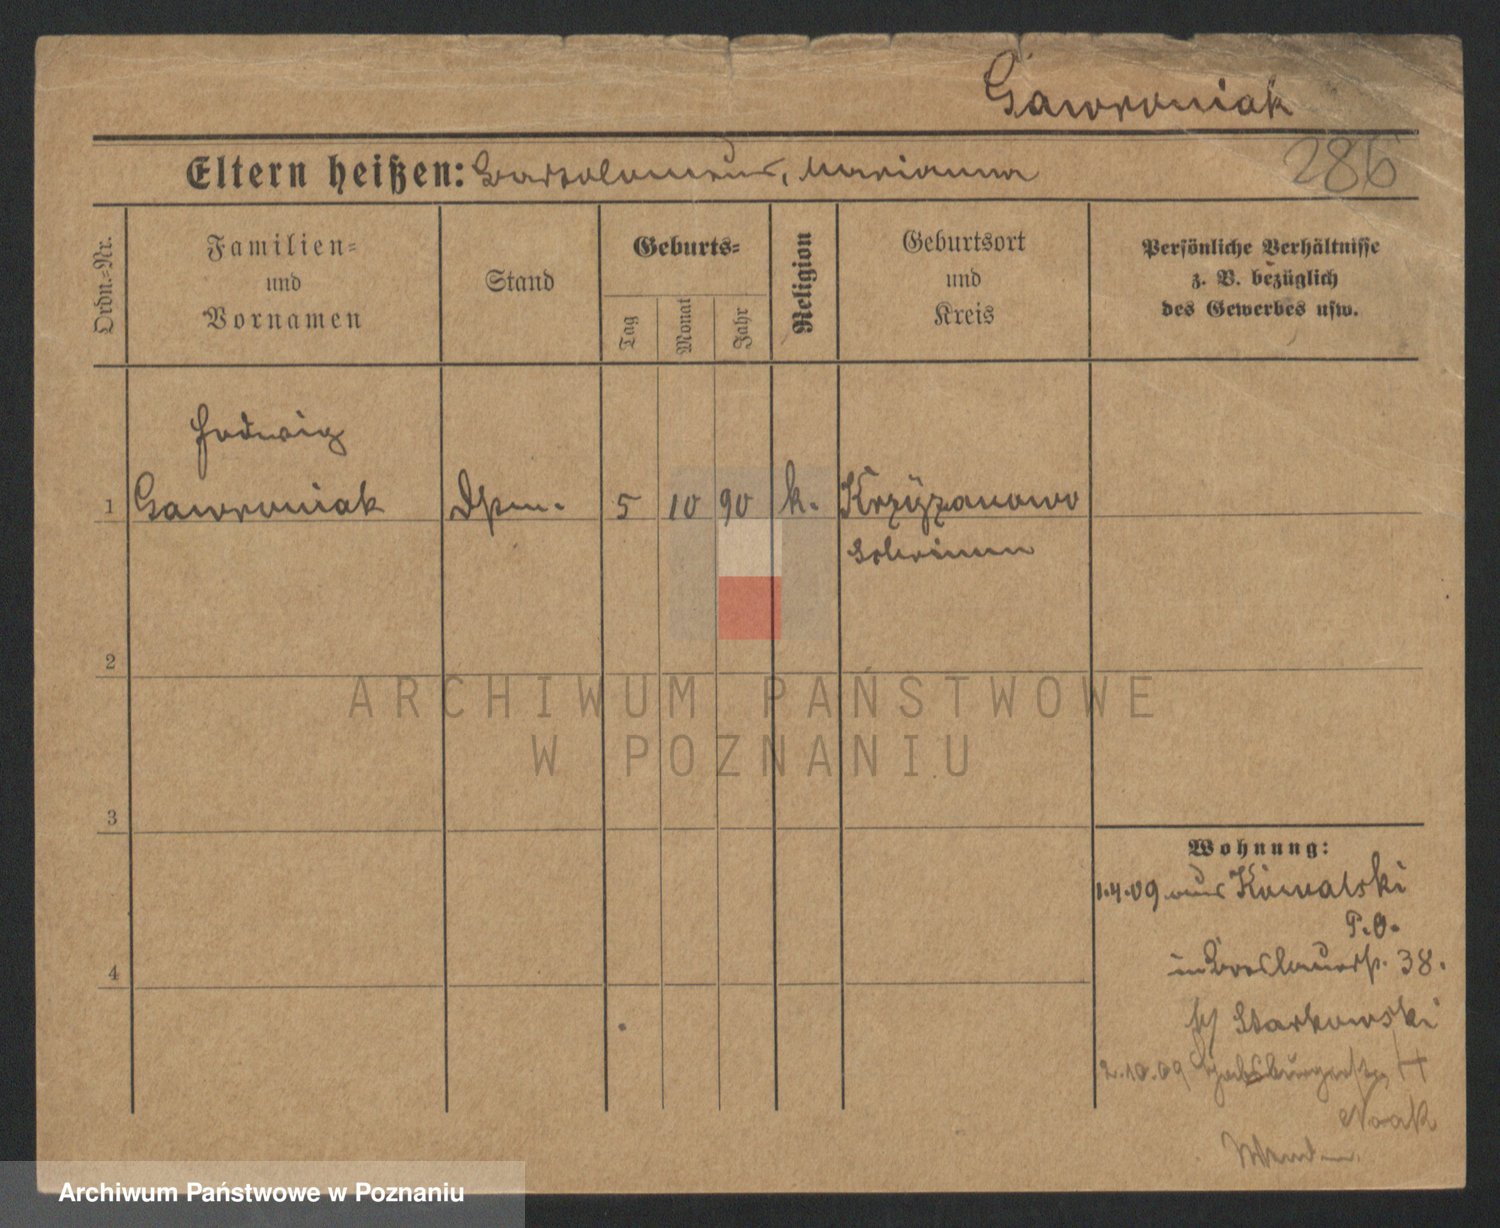 Gawroniak
286
Eltern heißen: Bartolomeus, Marianna
Ordn.=Nr.
Familien=
und
Vornamen
Stand
Geburts=
Tag
Monat
Jahr
Religion
Geburtsort
und
Kreis
Persönliche Verhältnisse
z. B. bezüglich
des Gewerbes usw.
Hedwig
1 Gawroniak 5 10 90 k. Krzyżanowo
Schrimm
2
ARCHIWUM PAŃSTWOWE
W POZNANIU
3
Wohnung:
1.4.09 aus Kowalski
P.O.
in Breslauerstr. 38.
b/ Starkowski
4
2.10.09 Habsburgerstr.
Noak
Archiwum Państwowe w Poznaniu